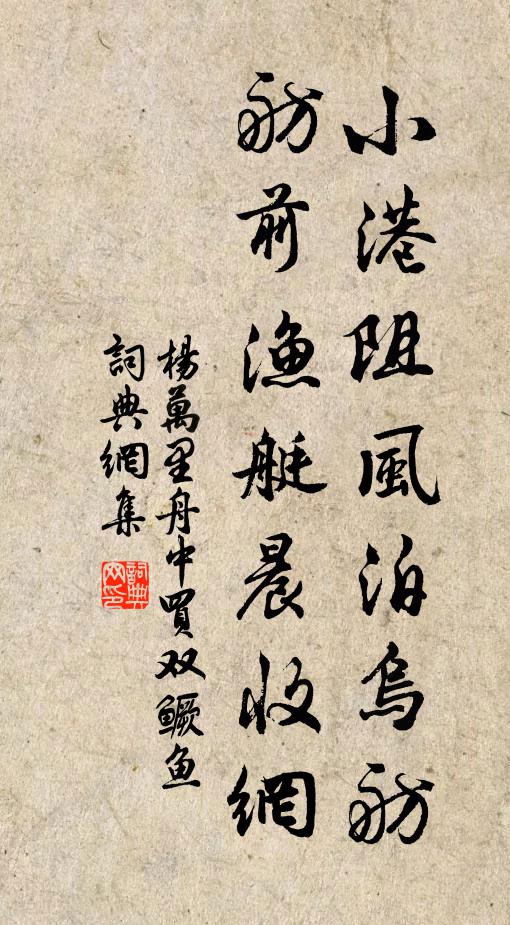 小港阻風泊烏舫
舫前漁艇晨收網
楊萬里舟中買双鳜魚
詞典網集
詞典网印